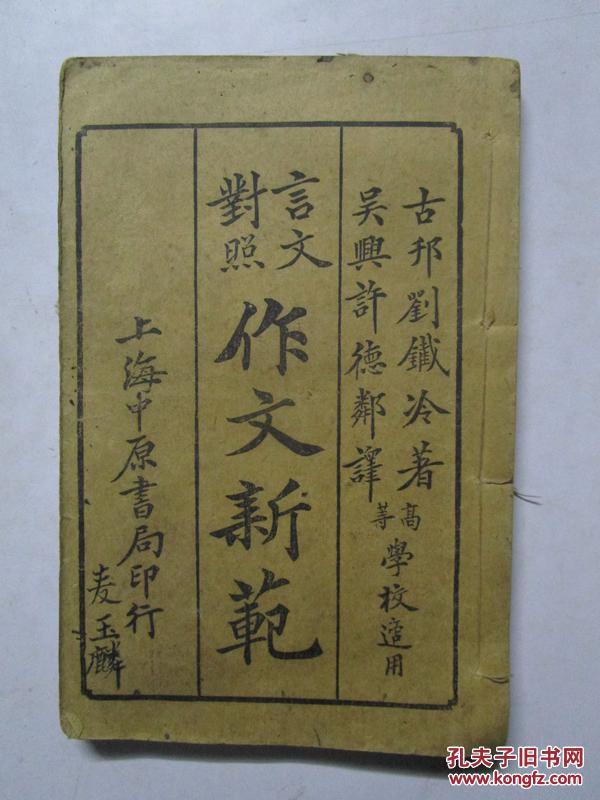 古邦劉鐵冷著
吴興許德鄰譯
高等學校適用
言文
對照
作文新範
上海中原書局印行
麦玉麟
孔夫子旧书网
www.kongfz.com